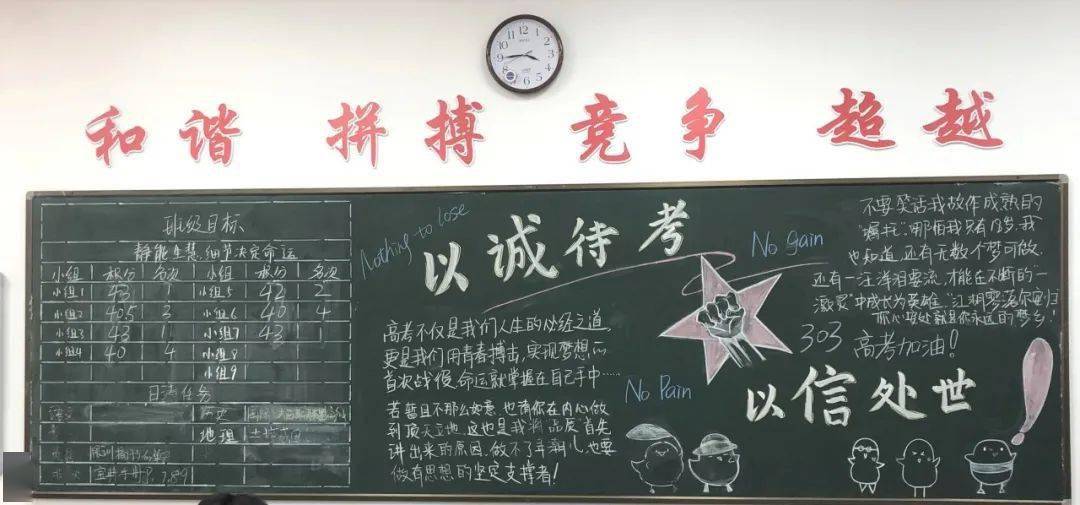 和谐 拼搏 竞争 超越
班级目标
静能生慧,细节决定命运
小组 积分 名次 小组 积分 名次
小组1 43 1 小组5 42 2
小组2 405 3 小组6 40 4
小组3 43 1 小组7 43 1
小组4 40 4 小组8
小组9
日清任务
历史
地理
Nothing to lose
以诚待考
No gain
高考不仅是我们人生的必经之道,
更是我们用青春搏击,实现梦想的
首次战役,命运就掌握在自己手中……
若暂且不那么如意,也请你在内心做
到顶天立地,这也是我将品质首先
讲出来的原因,做不了弄潮儿,也要
做有思想的坚定支撑者!
No Pain
不要笑话我故作成熟的
嘱托,那怕我只有18岁,我
也知道,还有无数个梦可做,
还有一汪洋泪要流,才能在不断的一
激灵"中成长为英雄,
你心安处就是你永远的梦乡!
303 高考加油!
以信处世